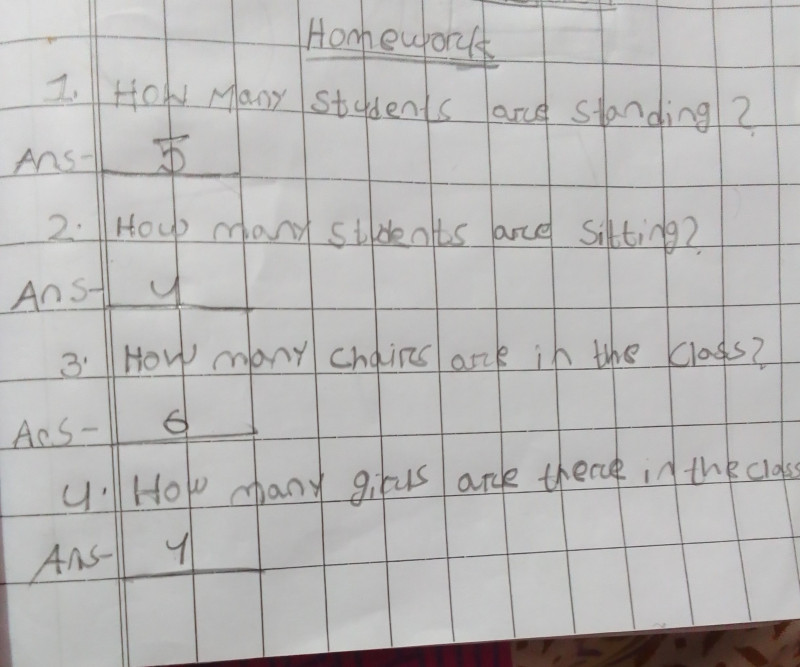 Homework
1. How Many students are standing?
Ans- 5
2. How many students are sitting?
Ans- 4
3. How many chairs are in the class?
Ans- 6
4. How many girls are there in the class
Ans- 4